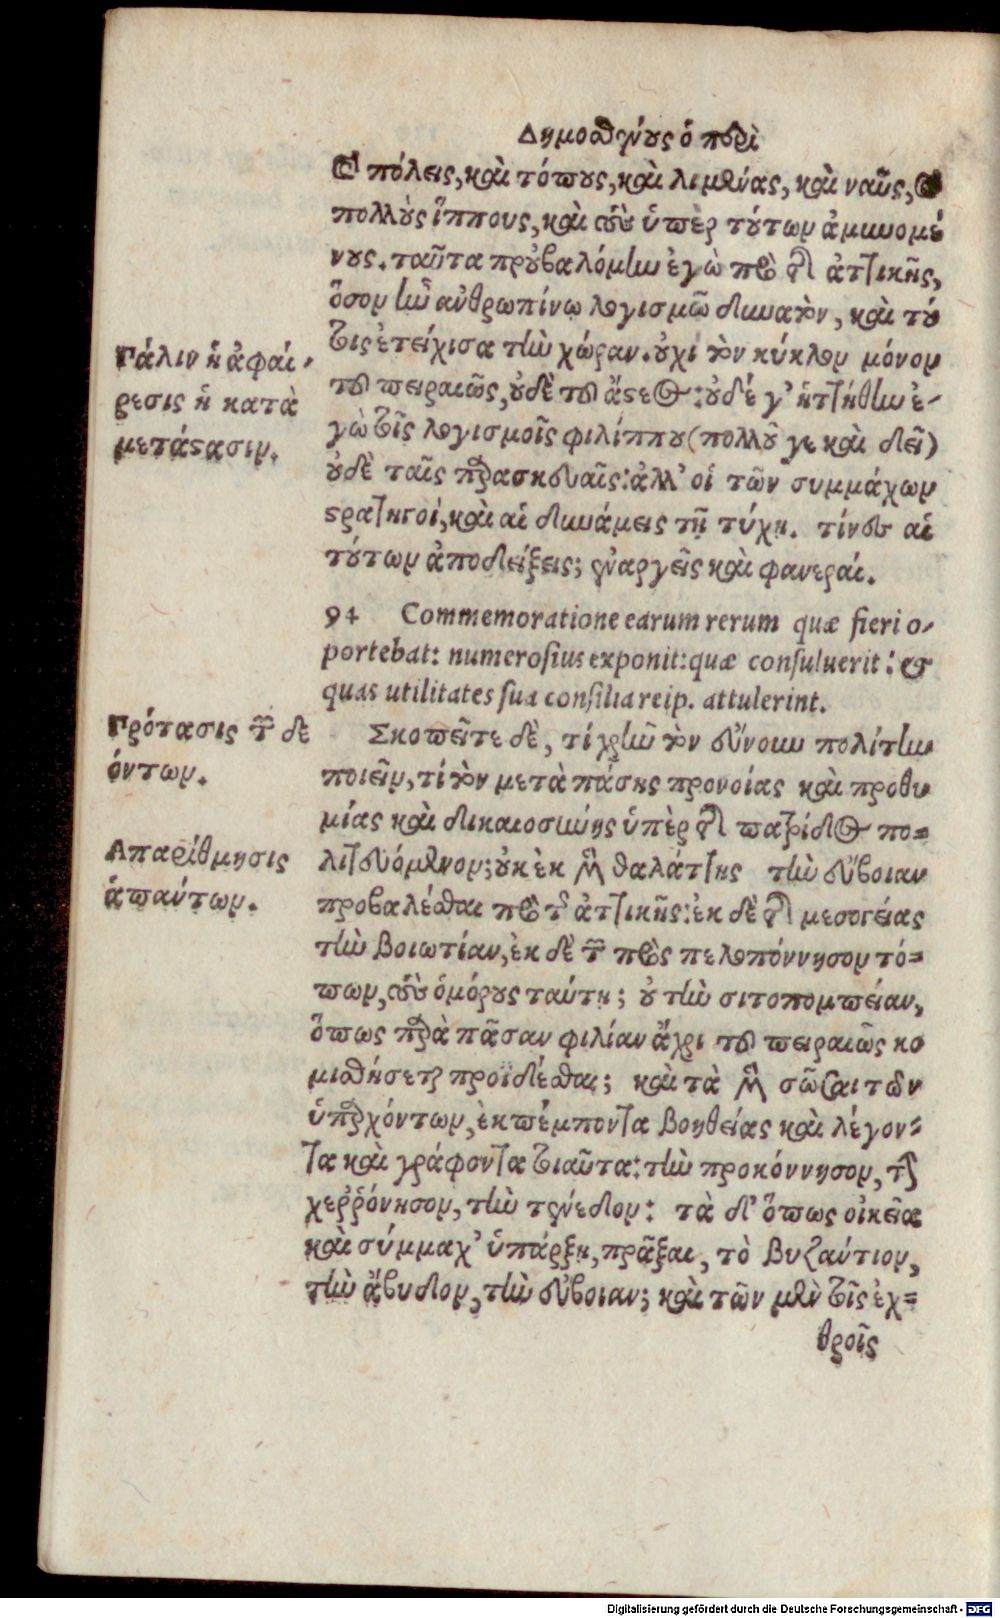 Δημοσθένους ὁ περὶ
καὶ πόλεις, καὶ τόπους, καὶ λιμένας, καὶ ναῦς, καὶ
πολλοὺς ἵππους, καὶ τοὺς ὑπὲρ τούτων ἀμυνομέ
νους. ταῦτα προὐβαλόμην ἐγὼ πρὸ τῆς ἀττικῆς,
ὅσον ἦν ἀνθρωπίνῳ λογισμῷ δυνατὸν, καὶ τού
τοις ἐτείχισα τὴν χώραν. οὐχὶ τὸν κύκλον μόνον
τοῦ πειραιῶς, οὐδὲ τοῦ ἄστεος: οὐδέ γ' ἡττήθην ἐ-
γὼ τοῖς λογισμοῖς φιλίππου (πολλοῦ γε καὶ δεῖ)
οὐδὲ ταῖς παρασκευαῖς: ἀλλ' οἱ τῶν συμμάχων
στρατηγοί, καὶ αἱ δυνάμεις τῇ τύχῃ. τίνες αἱ
τούτων ἀποδείξεις; ἐναργεῖς καὶ φανεραί.
Πάλιν ἡ ἀφαί-
ρεσις ἡ κατὰ
μετάστασιν.
94 Commemoratione earum rerum quæ fieri o-
portebat: numerosius exponit: quæ consuluerit: &
quas utilitates sua consilia reip. attulerint.
Πρότασις τῶν δε
όντων.
Σκοπεῖτε δὲ, τί χρῆν τὸν εὔνουν πολίτην
ποιεῖν, τί τὸν μετὰ πάσης προνοίας καὶ προθυ
μίας καὶ δικαιοσύνης ὑπὲρ τῆς πατρίδος πο-
λιτευόμενον; οὐκ ἐκ μὲν θαλάττης τὴν εὔβοιαν
προβαλέσθαι πρὸ τῆς ἀττικῆς: ἐκ δὲ τῆς μεσογείας
τὴν βοιωτίαν, ἐκ δὲ τῶν πρὸς πελοπόννησον τό-
πων, τοὺς ὁμόρους ταύτῃ; οὐ τὴν σιτοπομπείαν,
ὅπως παρὰ πᾶσαν φιλίαν ἄχρι τοῦ πειραιῶς κο
μισθήσεται προϊδέσθαι; καὶ τὰ μὲν σῶσαι τῶν
ὑπαρχόντων, ἐκπέμποντα βοηθείας καὶ λέγον-
τα καὶ γράφοντα τοιαῦτα: τὴν προκόννησον, τὴν
χερῤῥόνησον, τὴν τένεδον: τὰ δ' ὅπως οἰκεῖα
καὶ σύμμαχ' ὑπάρξῃ, πρᾶξαι, τὸ βυζάντιον,
τὴν ἄβυδον, τὴν εὔβοιαν; καὶ τῶν μὲν τοῖς ἐχ-
θροῖς
Απαρίθμησις
ἁπάντων.
Digitalisierung gefördert durch die Deutsche Forschungsgemeinschaft - DFG